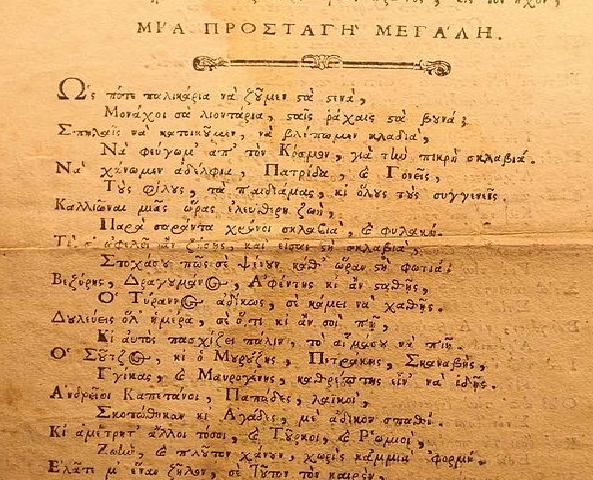 ΜΙ'Α ΠΡΟΣΤΑΓΗ' ΜΕΓΑ'ΛΗ.
Ὣς πότε παλικάρια νὰ ζοῦμεν στὰ στενὰ,
Μονάχοι σὰ λιοντάρια, σταῖς ῥάχαις στὰ βουνά;
Σπηλαὶς νὰ κατοικοῦμεν, νὰ βλέπωμεν κλαδιὰ,
Νὰ φεύγωμ' ἀπ' τὸν Κόσμον, γιὰ τὴν πικρὴ σκλαβιά.
Νὰ χάνωμεν ἀδέλφια, Πατρίδα, καὶ Γονεῖς,
Τοὺς φίλους, τὰ παιδιάμας, κι ὅλους τοὺς συγγενεῖς.
Καλλιῶναι μιᾶς ὥρας ἐλεύθερη ζωὴ,
Παρὰ σαράντα χρόνοι σκλαβιὰ, καὶ φυλακή.
Τὶ σ' ὠφελεῖ ἂν ζήσῃς, καὶ εἶσαι στὴ σκλαβιὰ,
Στοχάσου πῶς σὲ ψένουν καθ' ὥραν στὴ φωτιά.
Βεζύρης, Δραγουμάνος, Ἀφέντης κι ἂν σταθῇς,
Ὁ Τύραννος ἀδίκως, σὲ κάμει νὰ χαθῇς.
Δουλεύεις ὅλ' ἡμέρα, σὲ ὅ,τι κι ἂν σοὶ πῇ,
Κι αὐτὸς πασχίζει πάλιν, τὸ αἷμάσου νὰ πιῇ.
Ὁ Σοῦτζος, κι ὁ Μουρούζης, Πετράκης, Σκαναβὴς,
Γγίκας, καὶ Μαυρογένης, καθρέπτης εἶν' νὰ ἰδῇς.
Ἀνδρεῖοι Καπετάνοι, Παπάδες, λαϊκοὶ,
Σκοτώθηκαν κι Ἀγάδες, μὲ ἄδικον σπαθί.
Κι ἀμέτρητ' ἄλλοι τόσοι, καὶ Τοῦρκοι, καὶ Ῥωμιοὶ,
Ζωὴν, καὶ πλοῦτον χάνουν, χωρὶς κἀμμιὰ 'φορμή.
Ἐλᾶτε μ' ἕναν ζῆλον, σὲ τοῦτον τὸν καιρὸν,